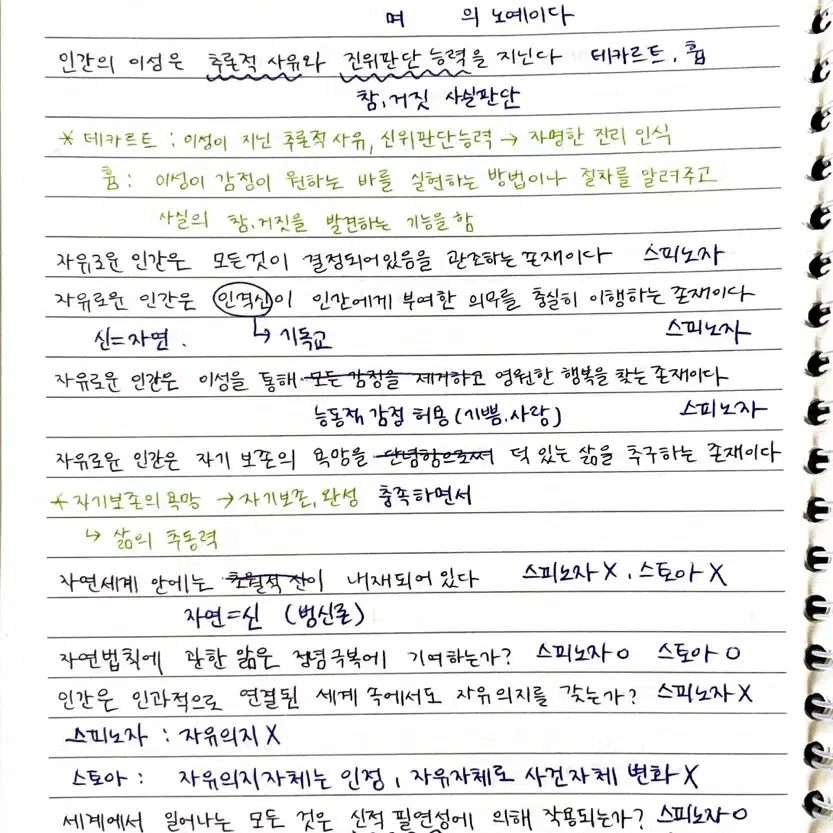 며 의 노예이다
인간의 이성은 추론적 사유와 진위판단 능력을 지닌다 데카르트, 흄
참, 거짓 사실판단
* 데카르트 : 이성이 지닌 추론적 사유, 진위판단능력 → 자명한 진리 인식
흄 : 이성이 감정이 원하는 바를 실현하는 방법이나 절차를 알려주고
사실의 참, 거짓을 발견하는 기능을 함
자유로운 인간은 모든것이 결정되어있음을 관조하는 존재이다 스피노자
자유로운 인간은 인격신이 인간에게 부여한 의무를 충실히 이행하는 존재이다
신=자연. ↳ 기독교 스피노자
자유로운 인간은 이성을 통해 모든 감정을 제거하고 영원한 행복을 찾는 존재이다
능동적 감정 허용 (기쁨, 사랑) 스피노자
자유로운 인간은 자기 보존의 욕망을 단념함으로써 덕 있는 삶을 추구하는 존재이다
* 자기보존의 욕망 → 자기보존, 완성 충족하면서
↳ 삶의 추동력
자연세계 안에는 초월적 신이 내재되어 있다 스피노자 X, 스토아 X
자연=신 (범신론)
자연법칙에 관한 앎은 정념극복에 기여하는가? 스피노자 O 스토아 O
인간은 인과적으로 연결된 세계 속에서도 자유의지를 갖는가? 스피노자 X
스피노자 : 자유의지 X
스토아 : 자유의지자체는 인정, 자유자체로 사건자체 변화 X
세계에서 일어나는 모든 것은 신적 필연성에 의해 작용되는가? 스피노자 O